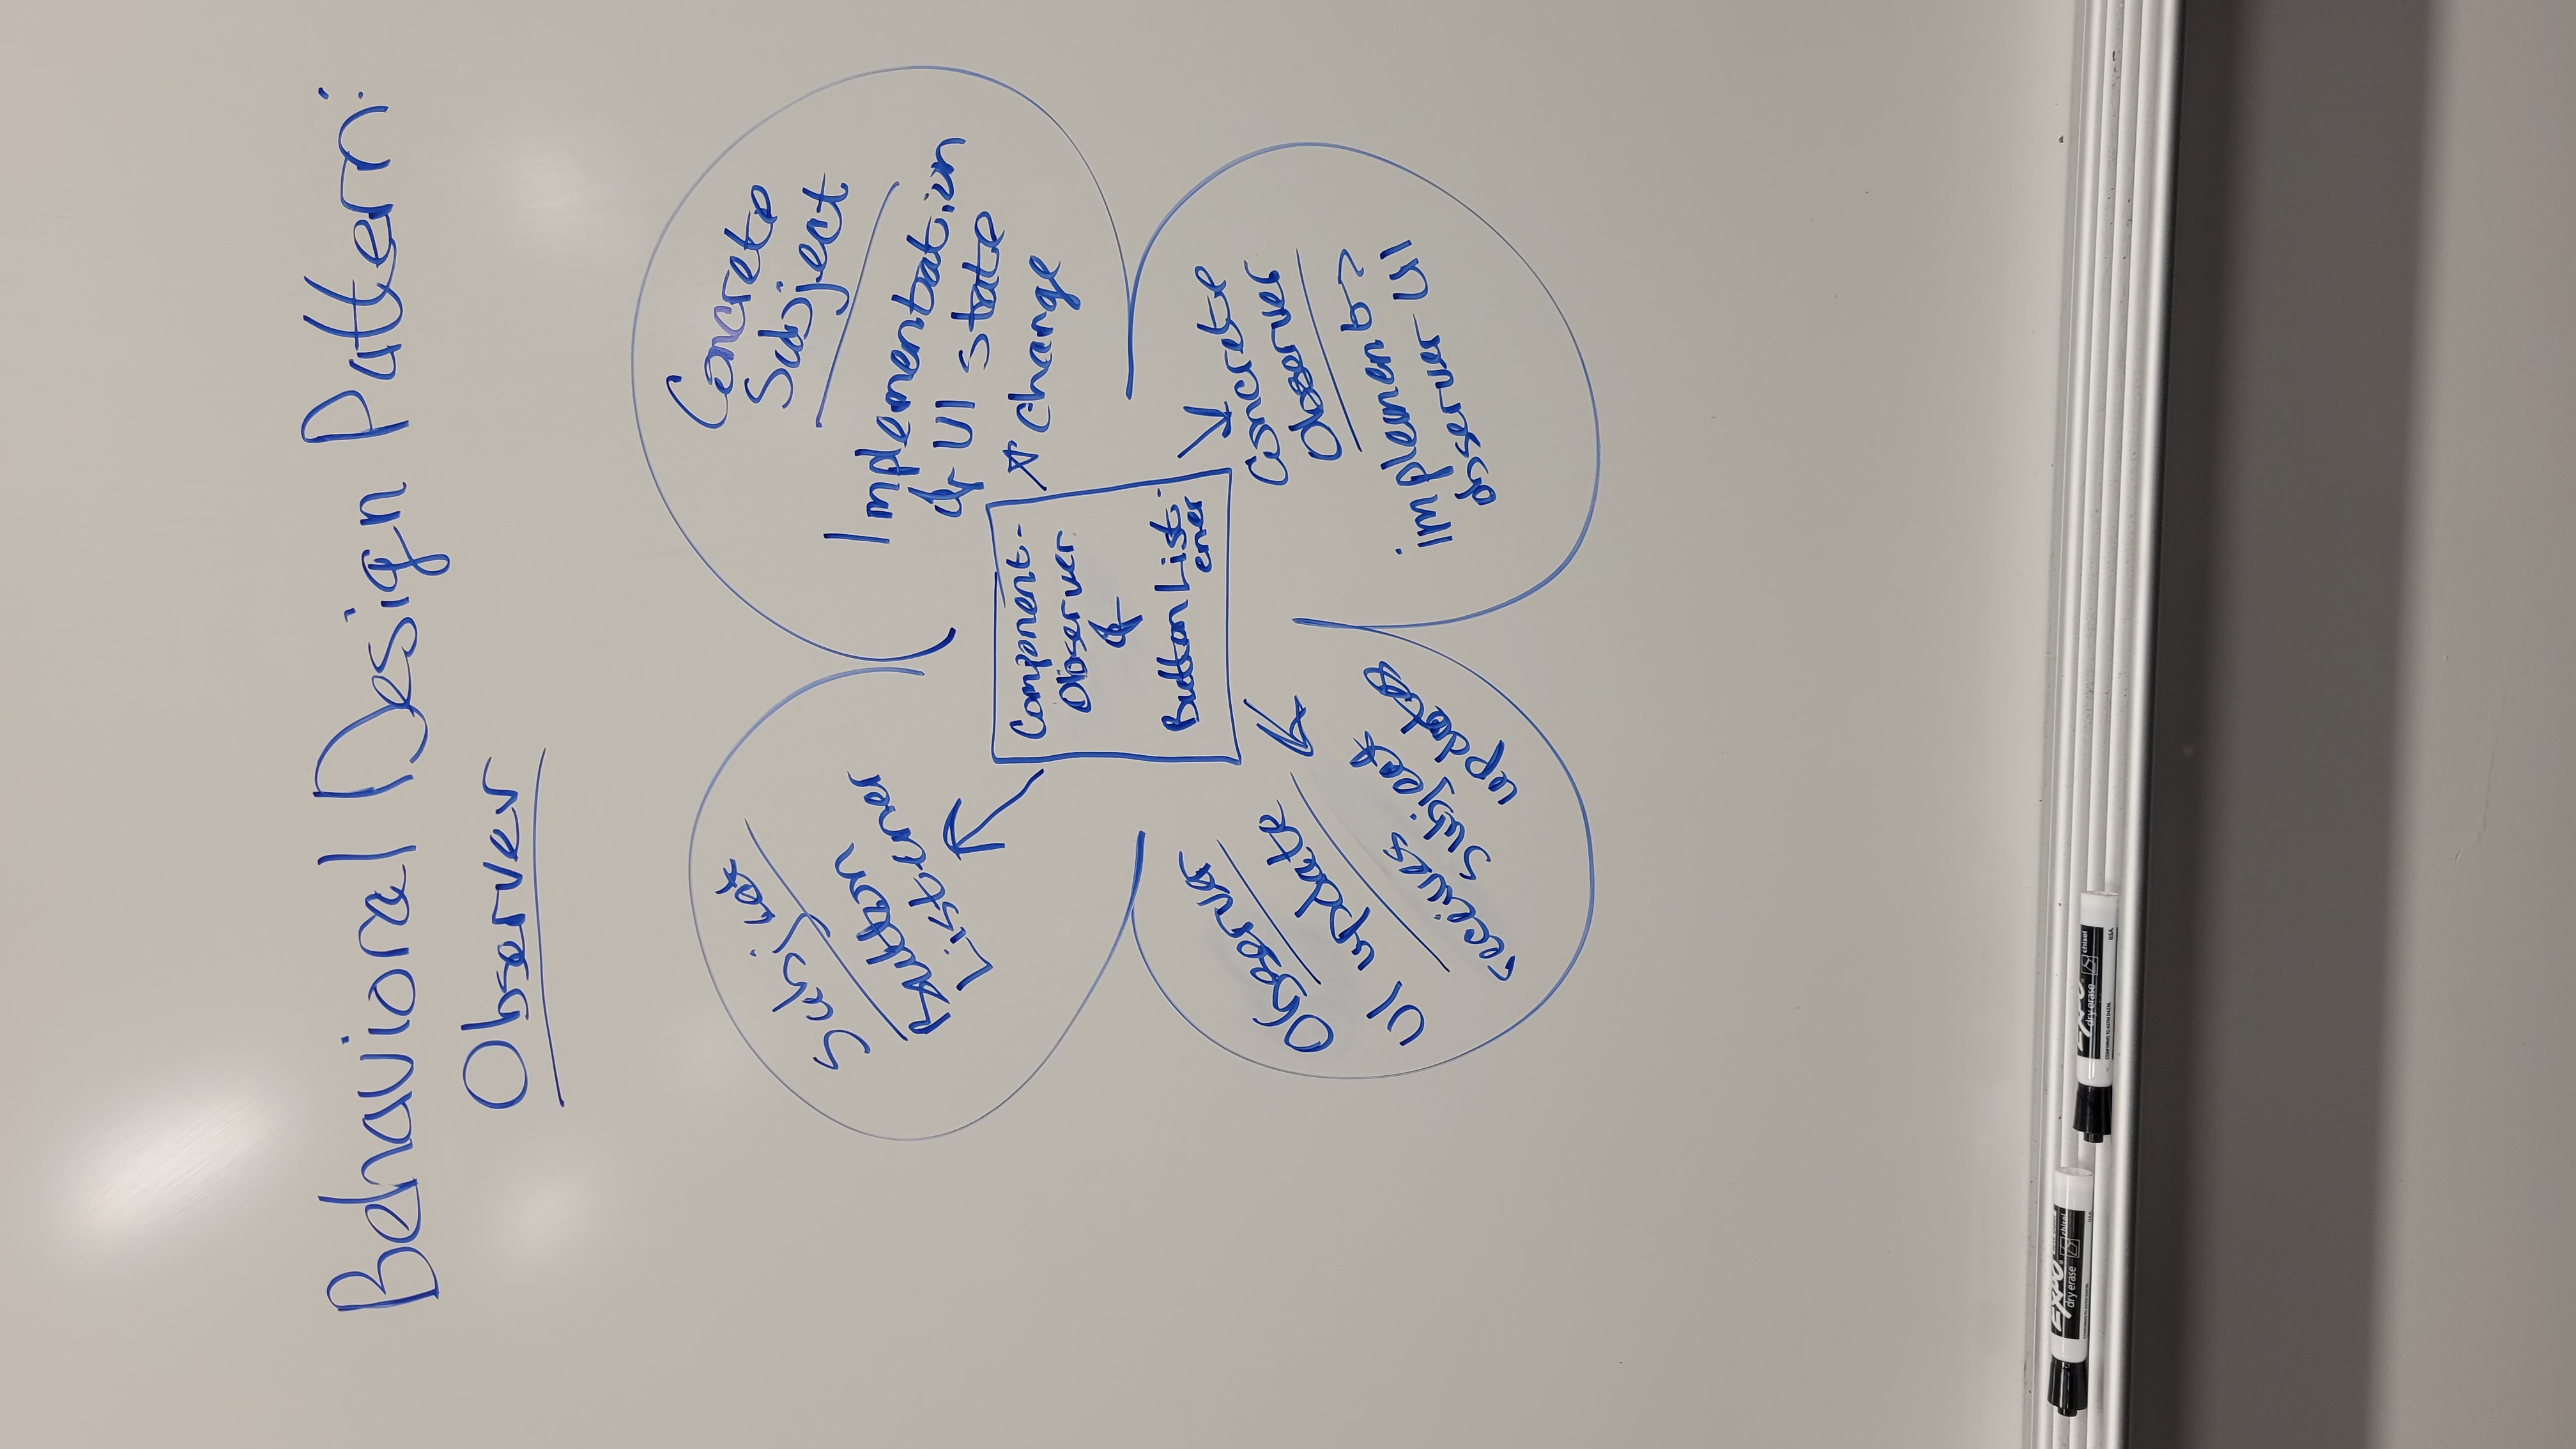 Behavioral Design Pattern:
Observer
Subject
Button
Listener
Concrete
Subject
Implementation
& UI state
change
Component-
Observer
&
Button List-
ener
Observer
UI update
receives
subject
updates
Concrete
Observer
implements
observer UI
EXPO
dry erase
chisel
U.S.A.
EXPO
dry erase
chisel
CONFORMS TO ASTM D4236
U.S.A.